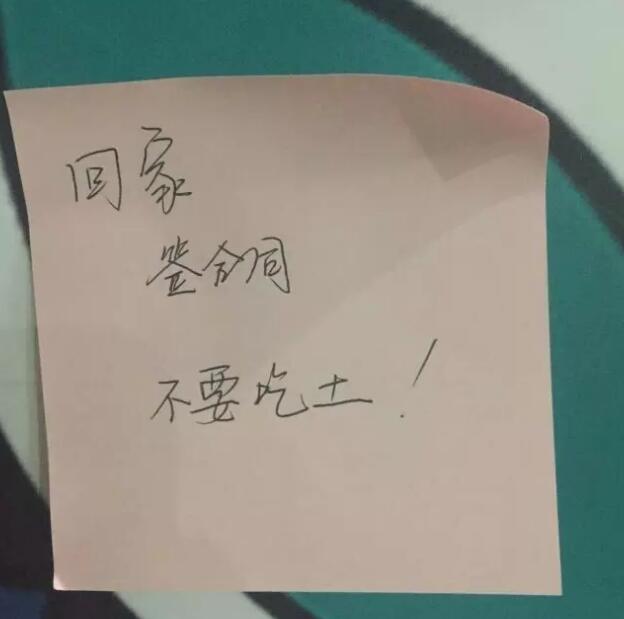 回家
签合同
不要吃土！